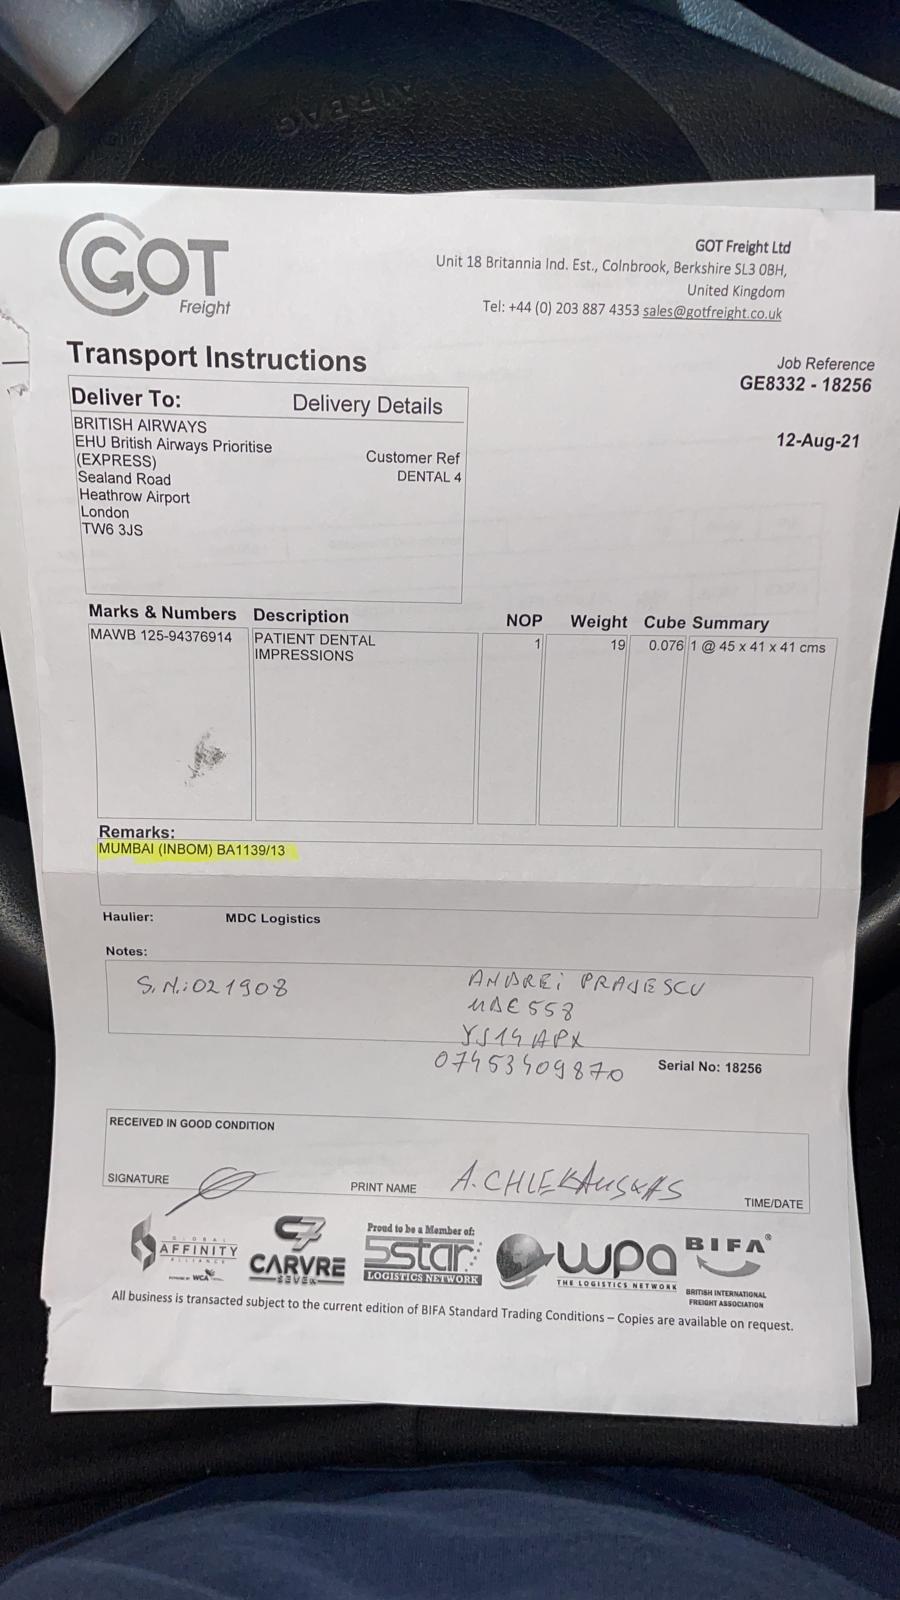 AIRBAG
GOT
Freight
GOT Freight Ltd
Unit 18 Britannia Ind. Est., Colnbrook, Berkshire SL3 0BH,
United Kingdom
Tel: +44 (0) 203 887 4353 sales@gotfreight.co.uk
Transport Instructions
Job Reference
GE8332 - 18256
12-Aug-21
Deliver To: Delivery Details
BRITISH AIRWAYS
EHU British Airways Prioritise
(EXPRESS)
Sealand Road
Heathrow Airport
London
TW6 3JS
Customer Ref
DENTAL 4
Marks & Numbers Description NOP Weight Cube Summary
MAWB 125-94376914 PATIENT DENTAL 1 19 0.076 1 @ 45 x 41 x 41 cms
IMPRESSIONS
Remarks:
MUMBAI (INBOM) BA1139/13
Haulier: MDC Logistics
Notes:
S.N.:021908
ANDREI
558
YS14 APX
07453409870
Serial No: 18256
RECEIVED IN GOOD CONDITION
SIGNATURE
PRINT NAME A.
TIME/DATE
GLOBAL
AFFINITY
ALLIANCE
POWERED BY WCA
C7
CARVRE
SEVEN
Proud to be a Member of:
5star
LOGISTICS NETWORK
wpa
THE LOGISTICS NETWORK
BIFA®
BRITISH INTERNATIONAL
FREIGHT ASSOCIATION
All business is transacted subject to the current edition of BIFA Standard Trading Conditions – Copies are available on request.